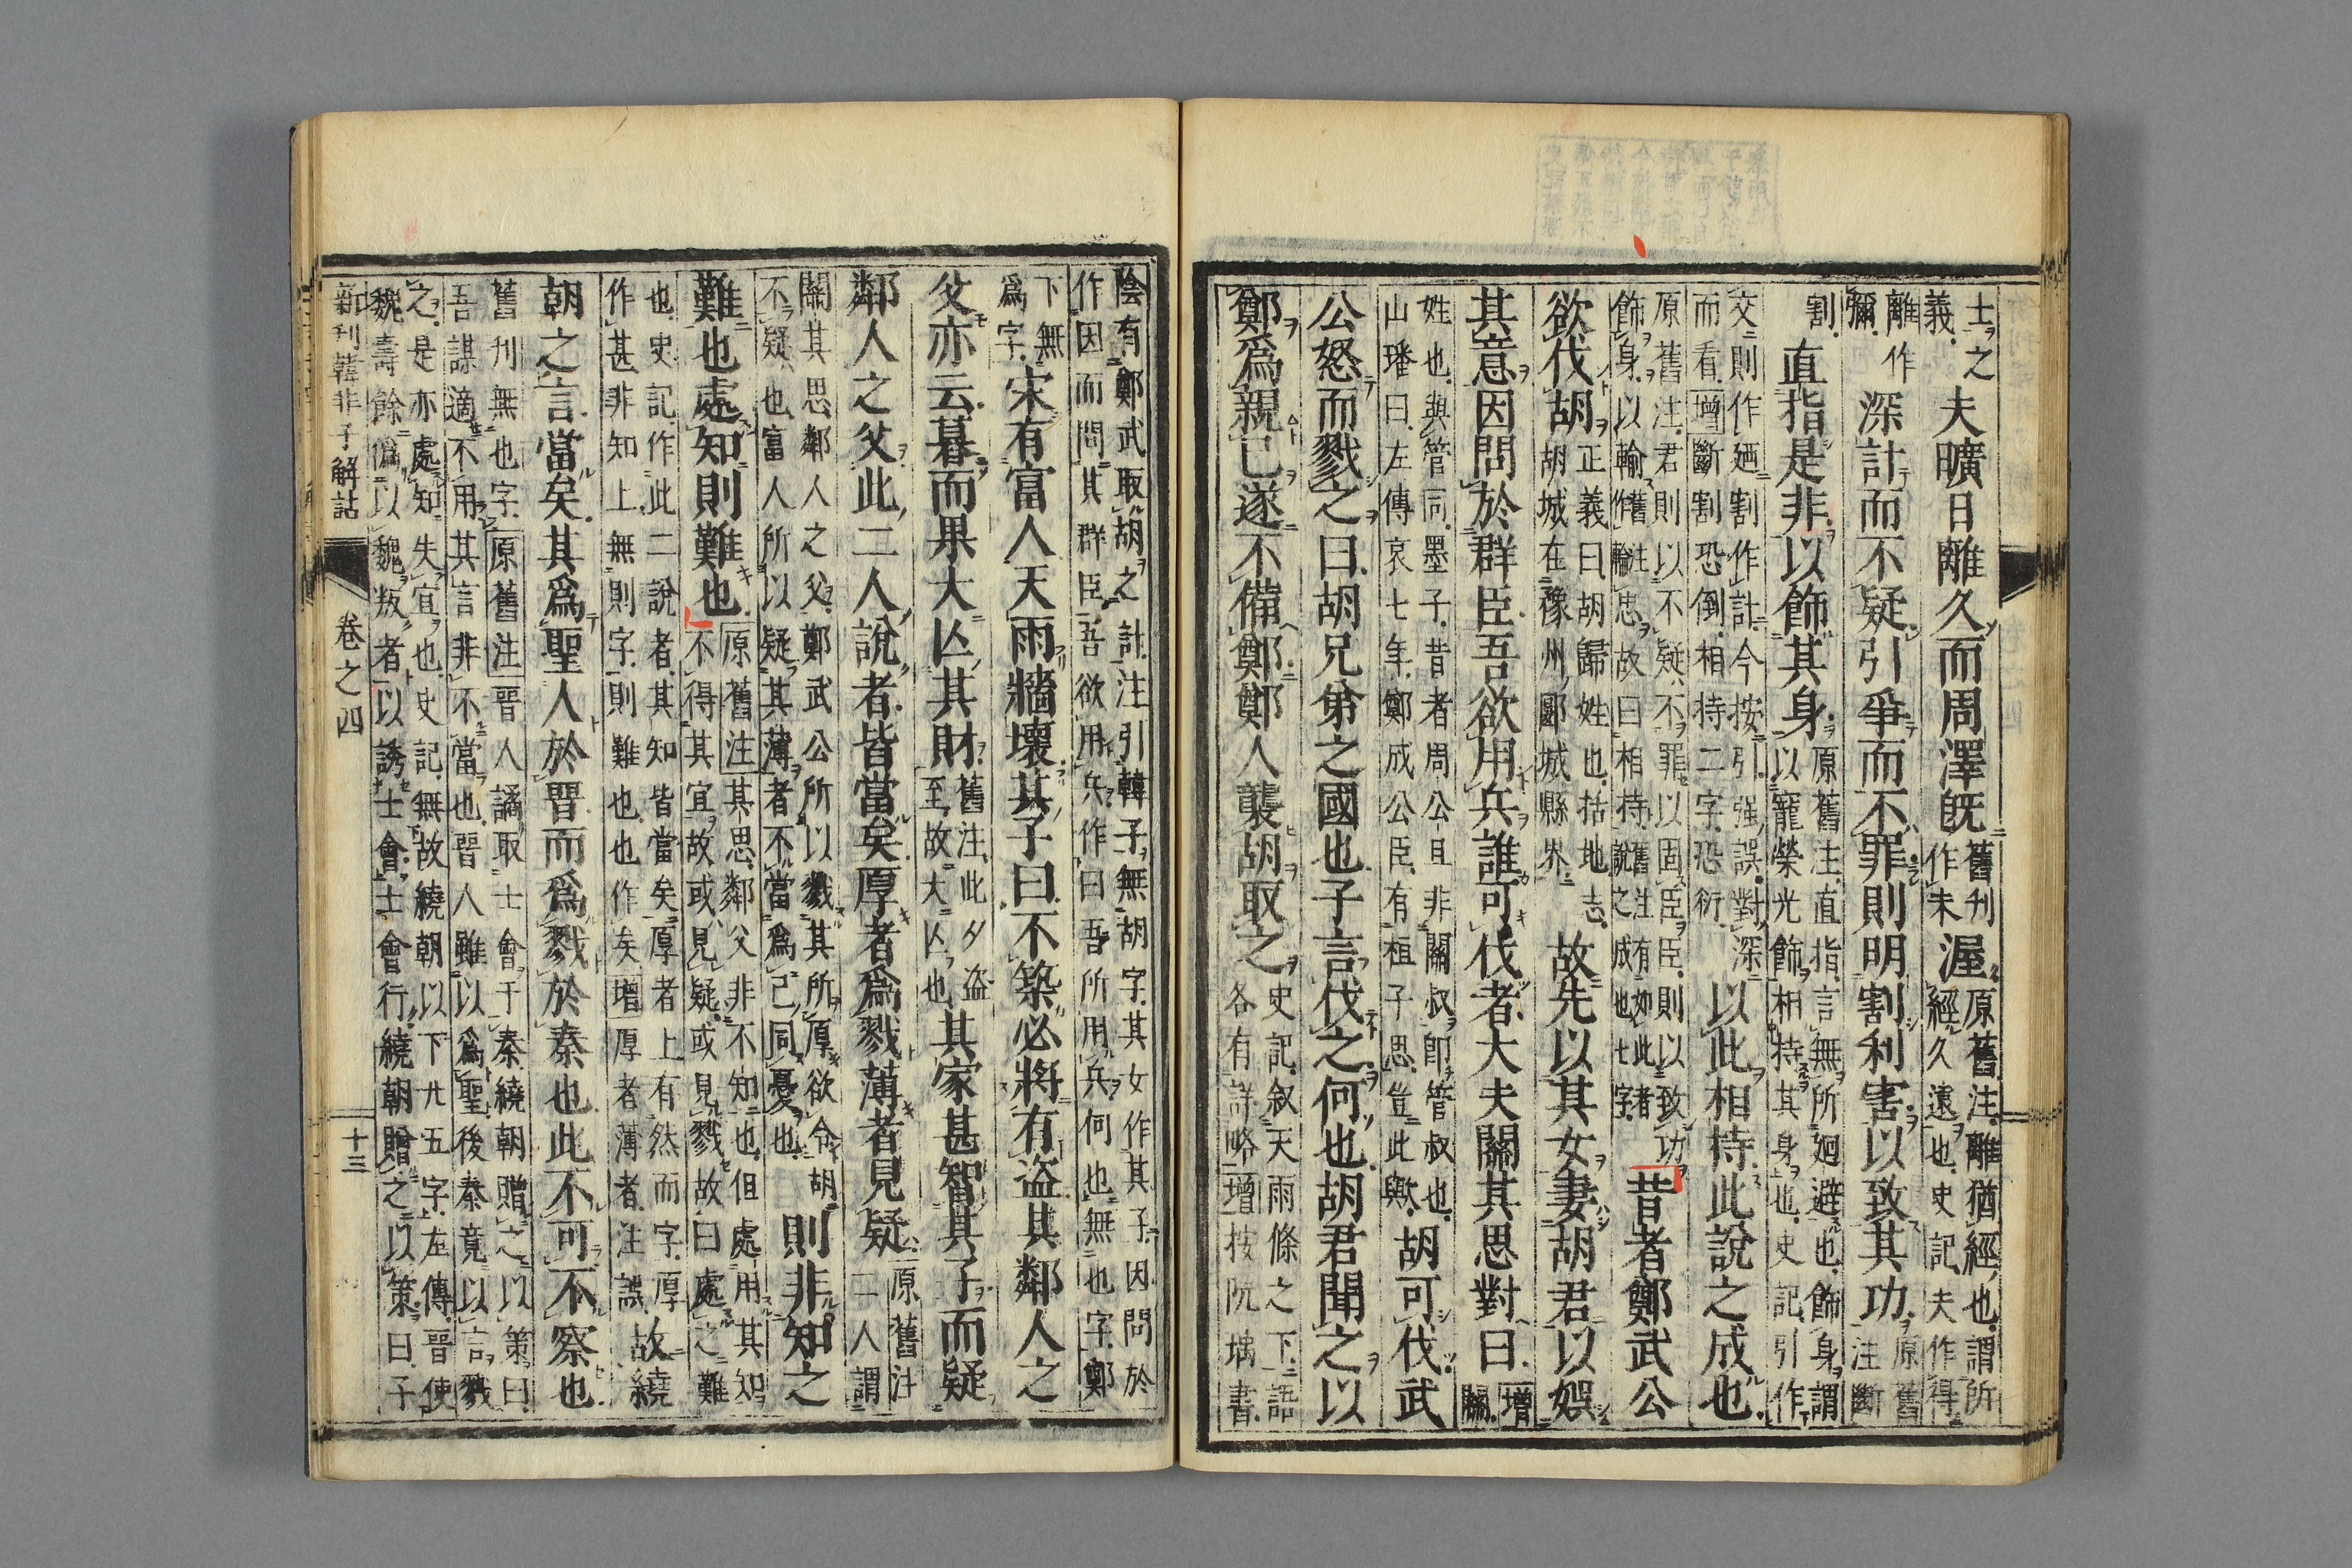 士之
義
夫曠日離久而周澤既
舊刊
作未
渥
原舊注離猶經也謂所
經久遠也史記夫作得
離作
彌
深計而不疑引爭而不罪則明割利害以致其功
原舊
注斷
割
直指是非以飾其身
原舊注直指言無所廻避也飾身謂
以寵榮光飾相持其身也史記引作
交則作廼割作計今按引强誤對深
而看增斷割恐倒相持二字恐衍
以此相持此說之成也
原舊注君則以不疑不罪以固臣臣則以致功
飾身以輸舊注作輪忠故曰相持舊注有如此者說之成也七字
昔者鄭武公
欲伐胡
正義曰胡歸姓也括地志
胡城在豫州郾城縣界
故先以其女妻胡君以娛
其意因問於群臣吾欲用兵誰可伐者大夫關其思對曰
增
關
姓也與管同墨子昔者周公旦非關叔卽管叔也
山璠曰左傳哀七年鄭成公臣有桓子思豈此與
胡可伐武
公怒而戮之曰胡兄弟之國也子言伐之何也胡君聞之以
鄭爲親已遂不備鄭鄭人襲胡取之
史記叙天雨條之下語
各有詳略增按阮瑀書
陰有鄭武取胡之計注引韓子無胡字其女作其子因問於
作因而問其群臣吾欲用兵作曰吾所用兵何也無也字鄭
下無
爲字
宋有富人天雨牆壞其子曰不築必將有盜其鄰人之
父亦云暮而果大亾其財
舊注此夕盗
至故大亾也
其家甚智其子而疑
鄰人之父此二人說者皆當矣厚者爲戮薄者見疑
原舊注
二人謂
關其思鄰人之父鄭武公所以戮其所厚欲令胡
不疑也富人所以疑其薄者不當爲己同憂也
則非知之
難也處知則難也
原舊注其思鄰父非不知也但處用其知
不得其宜故或見疑或見戮故曰處之難
也史記作此二說者其知皆當矣厚者上有然而字厚
作甚非知上無則字則難也也作矣增厚者薄者注誤
故繞
朝之言當矣其爲聖人於晋而爲戮於秦也此不可不察也
舊刊無也字原舊注晋人譎取士會于秦繞朝贈之以策曰
吾謀適不用其言非不當也晋人雖以爲聖後秦竟以言戮
之是亦處知失宜也史記無故繞朝以下廿五字左傳晋使
魏壽餘僞以魏叛者以誘士會士會行繞朝贈之以策曰子
新刊韓非子解詁
卷之四
十三